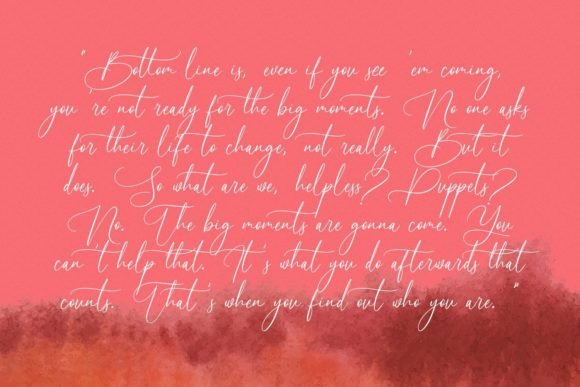 "Bottom line is, even if you see 'em coming,
you're not ready for the big moments. No one asks
for their life to change, not really. But it
does. So what are we, helpless? Puppets?
No. The big moments are gonna come. You
can't help that. It's what you do afterwards that
counts. That's when you find out who you are."